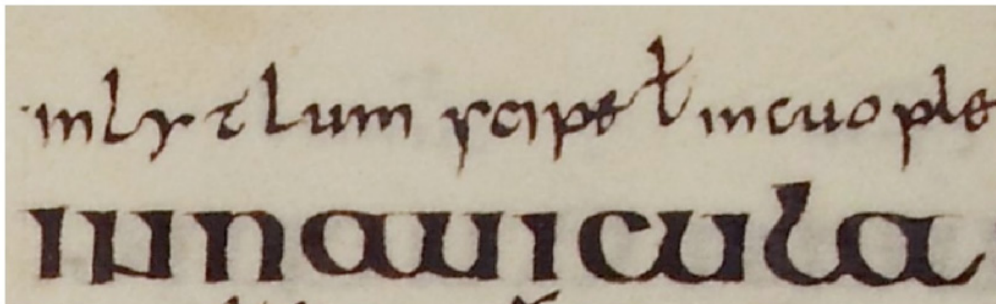 inlytlum scipe ł incuople
innauicula